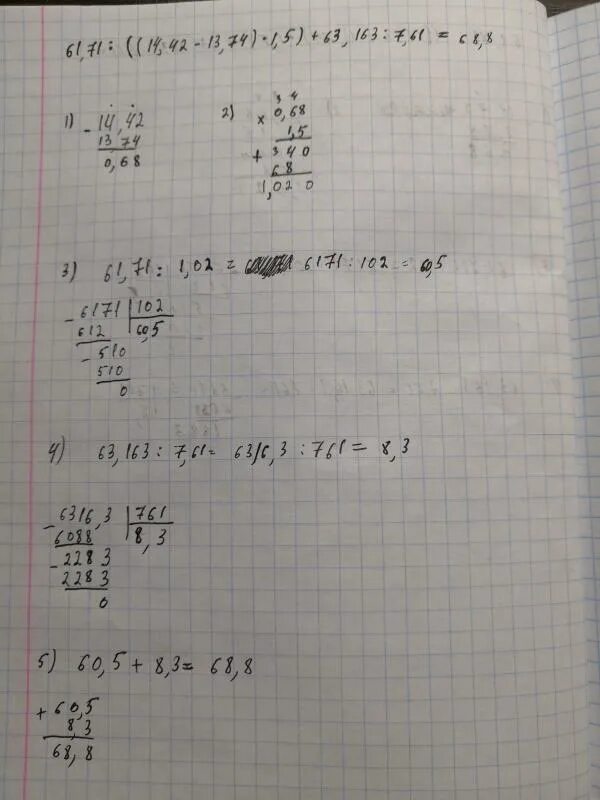 61,71 : ((14,42 - 13,74) · 1,5) + 63,163 : 7,61 = 68,8
1) - 14,42
13,74
0,68
2) 3 4
× 0,68
1,5
+ 3 4 0
6 8
1,02 0
3) 61,71 : 1,02 = 6171 : 102 = 60,5
- 6171 | 102
612 | 60,5
- 510
510
0
4) 63,163 : 7,61 = 6316,3 : 761 = 8,3
- 6316,3 | 761
6088 | 8,3
- 2283
2283
0
5) 60,5 + 8,3 = 68,8
+ 60,5
8,3
68,8